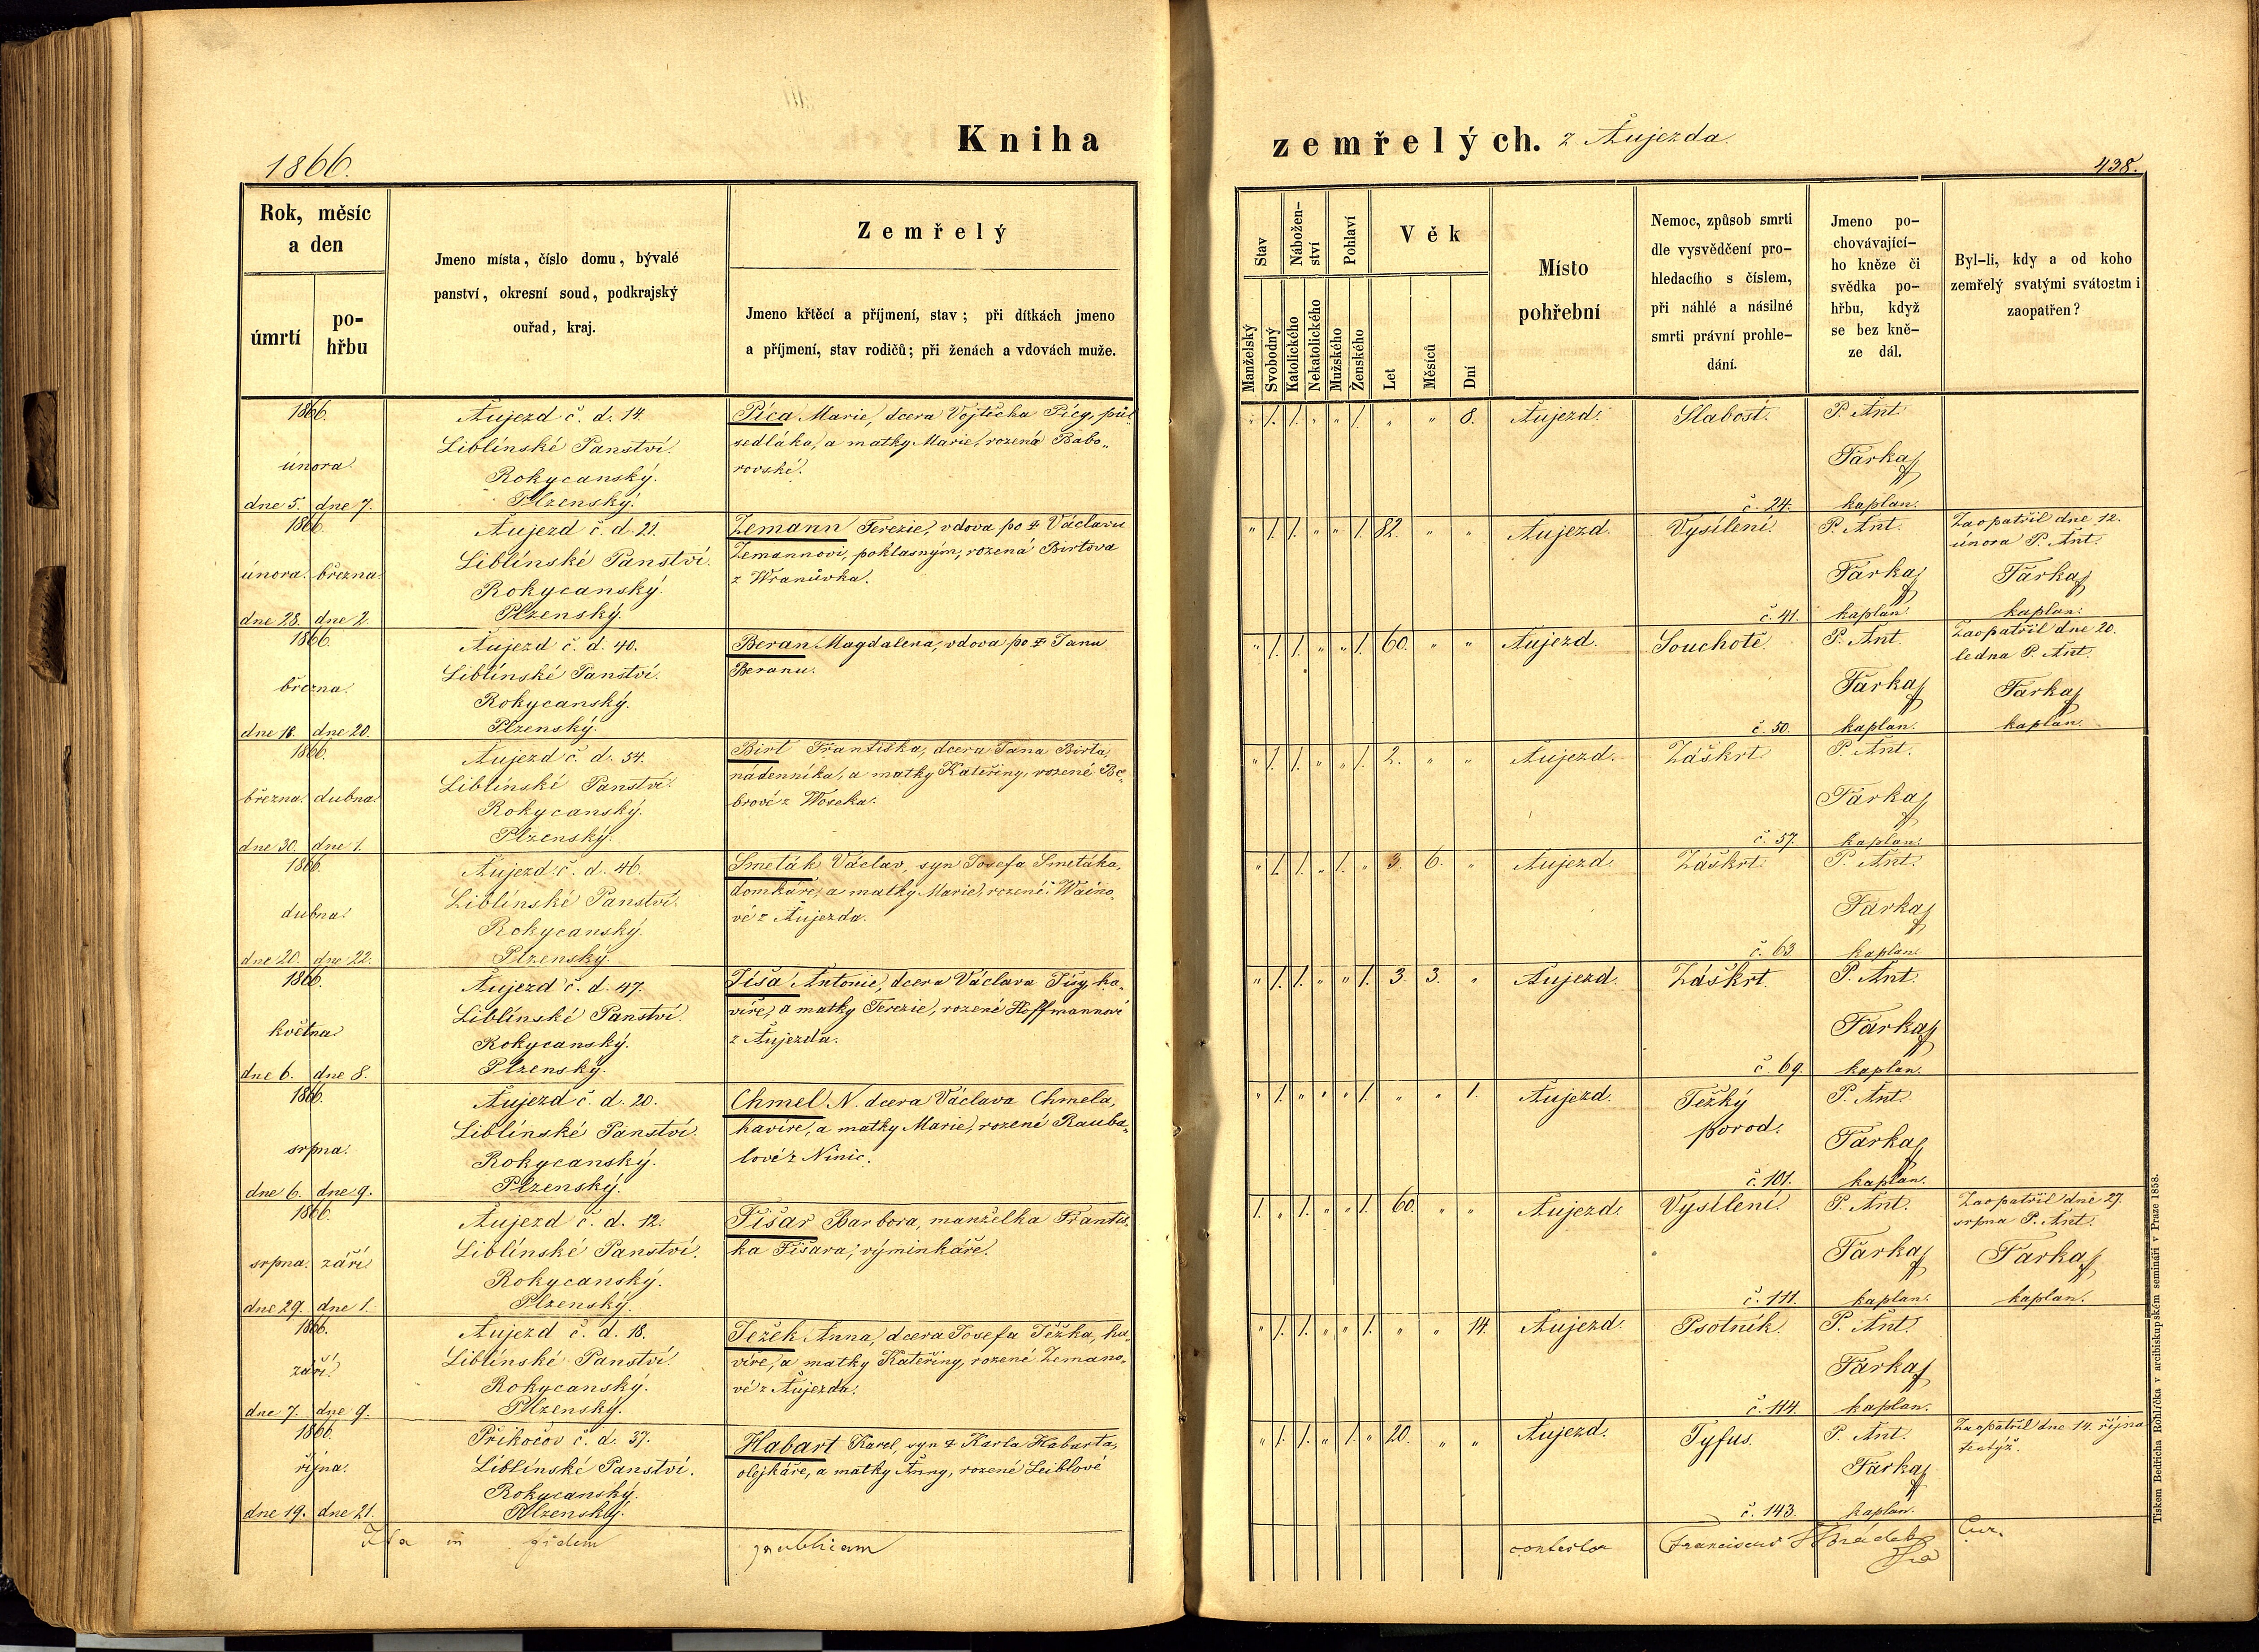 1866.
Kniha
Rok, měsíc
a den
úmrtí
po-
hřbu
Jmeno místa, číslo domu, bývalé
panství, okresní soud, podkrajský
ouřad, kraj.
Zemřelý
Jmeno křtěcí a příjmení, stav; při dítkách jmeno
a příjmení, stav rodičů; při ženách a vdovách muže.
1866.
února.
dne 5. dne 7.
Aujezd č. d. 14.
Liblínské Panství.
Rokycanský.
Plzenský.
Píca Marie, dcera Vojtěcha Pícy, půl
sedláka, a matky Marie, rozená Babo„
rovské.
1866.
února. března.
dne 28. dne 2.
Aujezd č. d. 21.
Liblínské Panství.
Rokycanský.
Plzenský.
Zemann Terezie, vdova po ✝ Václavu
Zemannovi, poklasným, rozená Birtova
z Wranůvka.
1866.
března.
dne 18. dne 20.
Aujezd č. d. 40.
Liblínské Panství.
Rokycanský.
Plzenský.
Beran Magdalena, vdova po ✝ Janu
Beranu.
1866.
března. dubna.
dne 30. dne 1.
Aujezd č. d. 54.
Liblínské Panství.
Rokycanský.
Plzenský.
Birt Františka, dcera Jana Birta,
nádenníka, a matky Kateřiny, rozené Be„
brové z Woseka.
1866.
dubna.
dne 20. dne 22.
Aujezd č. d. 46.
Liblínské Panství.
Rokycanský.
Plzenský.
Smeták Václav, syn Josefa Smetáka,
domkáře, a matky Marie, rozené Waino„
vé z Aujezda.
1866.
května.
dne 6. dne 8.
Aujezd č. d. 47.
Liblínské Panství.
Rokycanský.
Plzenský.
Jíša Antonie, dcera Václava Jíšy, ha„
víře, a matky Terezie, rozené Hoffmannové
z Aujezda.
1866.
srpna.
dne 6. dne 9.
Aujezd č. d. 20.
Liblínské Panství.
Rokycanský.
Plzenský.
Chmel N. dcera Václava Chmela,
havíře, a matky Marie, rozené Rauba„
lové z Ninic.
1866.
srpna. září.
dne 29. dne 1.
Aujezd č. d. 12.
Liblínské Panství.
Rokycanský.
Plzenský.
Fišar Barbora, manželka Františ„
ka Fišara, výminkáře.
1866.
září.
dne 7. dne 9.
Aujezd č. d. 18.
Liblínské Panství.
Rokycanský.
Plzenský.
Ježek Anna, dcera Josefa Ježka, ha„
víře, a matky Kateřiny, rozené Zemano„
vé z Aujezda.
1866.
října.
dne 19. dne 21.
Příkočov č. d. 37.
Liblínské Panství.
Rokycanský.
Plzenský.
Habart Karel, syn ✝ Karla Habarta,
olejkáře, a matky Anny, rozené Leiblové
Ita in fidem publicam
zemřelých. z Aujezda.
438.
Stav
Nábožen-
ství
Pohlaví
Věk
Manželský
Svobodný
Katolického
Nekatolického
Mužského
Ženského
Let
Měsíců
Dní
Místo
pohřební
Nemoc, způsob smrti
dle vysvědčení pro-
hledacího s číslem,
při náhlé a násilné
smrti právní prohle-
dání.
Jmeno po-
chovávající-
ho kněze či
svědka po-
hřbu, když
se bez kně-
ze dál.
Byl-li, kdy a od koho
zemřelý svatými svátostmi
zaopatřen?
„ 1. 1. „ „ 1. „ „ 8. Aujezd. Slabost. P. Ant.
Farka
č. 24. kaplan.
„ 1. 1. „ „ 1. 82. „ „ Aujezd. Vysílení. P. Ant. Zaopatřil dne 12.
února P. Ant.
Farka Farka
č. 41. kaplan. kaplan.
„ 1. 1. „ „ 1. 60. „ „ Aujezd. Souchotě. P. Ant. Zaopatřil dne 20.
ledna P. Ant.
Farka Farka
č. 50. kaplan. kaplan.
„ 1. 1. „ „ 1. 2. „ „ Aujezd. Záškrt. P. Ant.
Farka
č. 57. kaplan.
„ 1. 1. „ 1. „ 3. 6. „ Aujezd. Záškrt. P. Ant.
Farka
č. 63. kaplan.
„ 1. 1. „ „ 1. 3. 3. „ Aujezd. Záškrt. P. Ant.
Farka
č. 69. kaplan.
„ 1. „ „ „ 1. „ „ 1. Aujezd. Težký P. Ant.
porod.
Farka
č. 101. kaplan.
1. „ 1. „ „ 1. 60. „ „ Aujezd. Vysílení. P. Ant. Zaopatřil dne 27.
srpna P. Ant.
Farka Farka
č. 111. kaplan. kaplan.
„ 1. 1. „ „ 1. „ „ 14. Aujezd. Psotník. P. Ant.
Farka
č. 114. kaplan.
„ 1. 1. „ 1. „ 20. „ „ Aujezd. Tyfus. P. Ant. Zaopatřil dne 14. října
tentýž.
Farka
č. 143. kaplan.
contestor Franciscus Hrádek Cur.
Tiskem Bedřicha Rohlíčka v arcibiskupském semináři v Praze 1858.